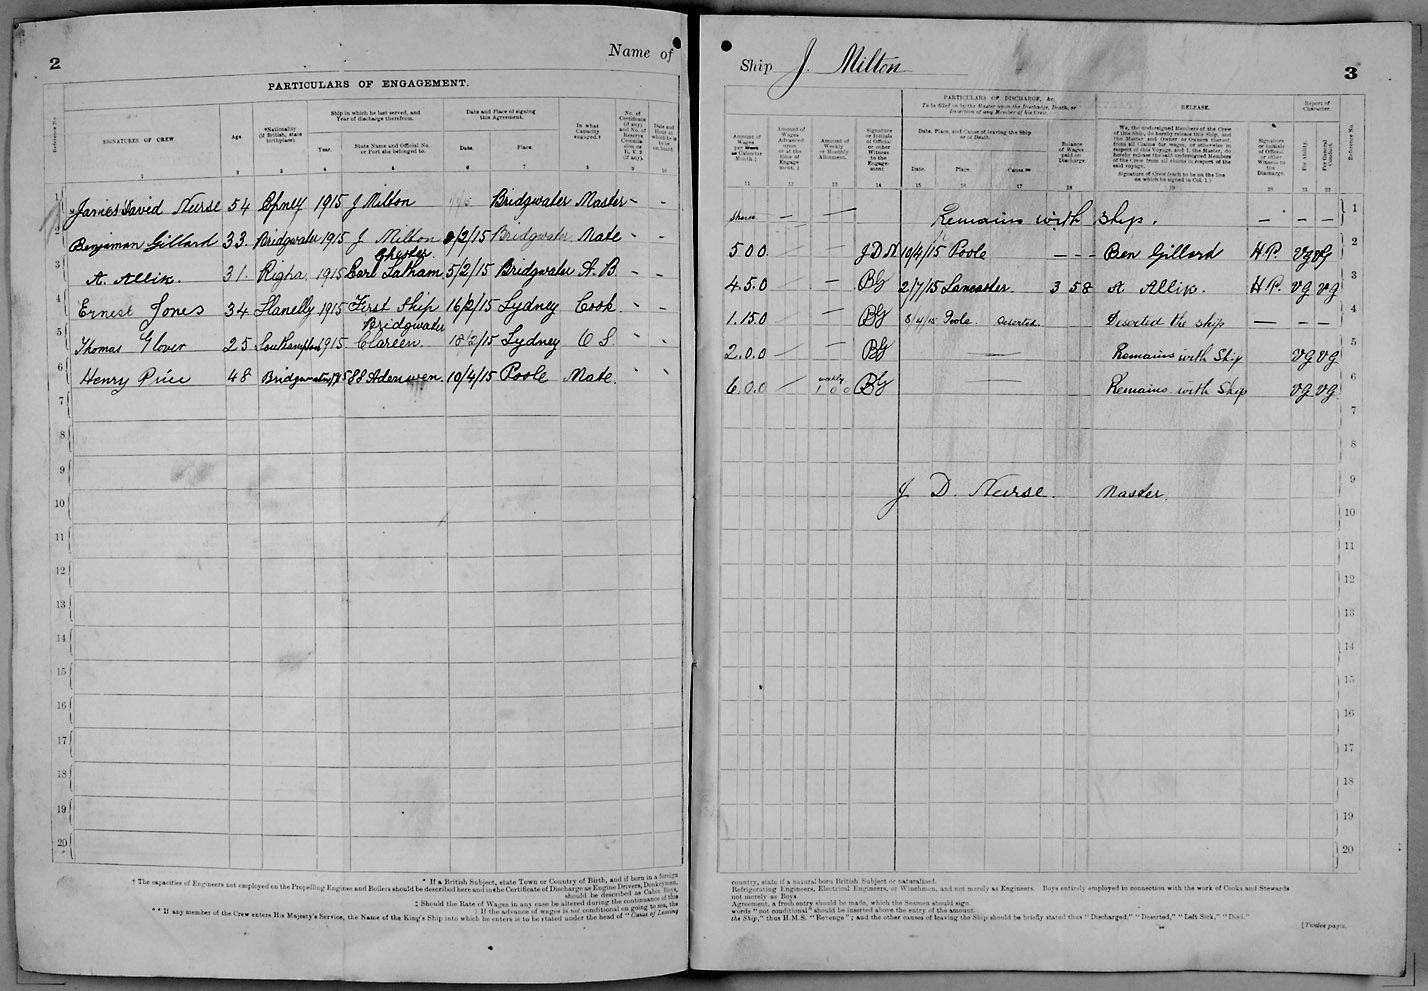 2
Name of
PARTICULARS OF ENGAGEMENT.
Reference No.
SIGNATURES OF CREW.
Age.
*Nationality (if British, state birthplace).
Ship in which he last served, and Year of discharge therefrom.
Year.
State Name and Official No. or Port she belonged to.
Date and Place of signing this Agreement.
Date.
Place.
In what Capacity engaged.†
No. of Certificate (if any) and No. of Reserve Commission or R. V. 2 (if any).
Date and Hour at which he is to be on board.
1 2 3 4 5 6 7 8 9 10
1 James David Nurse 54 Epney 1915 J Milton Bridgwater Master - -
2 Benjaman Gillard 33 Bridgwater 1915 J Milton /2/15 Bridgwater Mate - -
3 A. Allik. 31 Righa 1915 Earl Latham Chester 5/2/15 Bridgwater A. B - -
4 Ernest Jones 34 Llanelly 1915 First Ship 16/2/15 Lydney Cook. - -
5 Thomas Glover 25 Southampton 1915 Clareen. Bridgwater 18/2/15 Lydney O S - -
6 Henry Price 48 Bridgwater 1915 SS Adenwen. 10/4/15 Poole Mate. - -
7
8
9
10
11
12
13
14
15
16
17
18
19
20
† The capacities of Engineers not employed on the Propelling Engines and Boilers should be described here and in the Certificate of Discharge as Engine Drivers, Donkeymen,
* If a British Subject, state Town or Country of Birth, and if born in a foreign
should be described as Cabin Boys,
‡ Should the Rate of Wages in any case be altered during the continuance of this
If the advance of wages is not conditional on going to sea, the
** If any member of the Crew enters His Majesty's Service, the Name of the King's Ship into which he enters is to be stated under the head of "Cause of Leaving
Ship J. Milton
3
PARTICULARS OF DISCHARGE, &c.
To be filled in by the Master upon the Discharge, Death, or Desertion of any Member of his Crew.
RELEASE.
Report of Character.
Amount of Wages per Week or Calendar Month ‡
Amount of Wages Advanced upon or at the time of Engagement. ‡
Amount of Weekly or Monthly Allotment.
Signature or Initials of Official or other Witness to the Engagement
Date, Place, and Cause of leaving the Ship or of Death.
Date.
Place.
Cause.**
Balance of Wages paid on Discharge.
We, the undersigned Members of the Crew of this Ship, do hereby release this Ship, and the Master and Owner or Owners thereof, from all Claims for wages, or otherwise in respect of this Voyage, and I, the Master, do hereby release the said undersigned Members of the Crew from all claims in respect of the said voyage.
Signature of Crew (each to be on the line on which he signed in Col. 1.)
Signature or Initials of Official or other Witness to the Discharge.
For Ability.
For General Conduct.
Reference No.
11 12 13 14 15 16 17 18 19 20 21 22
Shares — — Remains with Ship. — — — 1
5 0 0 J D N 10/4/15 Poole - - - Ben Gillard H P. VG VG 2
4.5.0 — BG 2/7/15 Lancaster. 3 5 8 A. Allik. H P. VG VG 3
1.15.0 — BG 8/4/15 Poole Deserted. Deserted the Ship — — — 4
2.0.0 — — BG — Remains with Ship VG VG 5
6.0.0 — weekly 1 0 0 BG — Remains with Ship VG VG 6
7
8
9
J. D. Nurse. Master.
10
11
12
13
14
15
16
17
18
19
20
country, state if a natural born British Subject or naturalised.
Refrigerating Engineers, Electrical Engineers, or Winchmen, and not merely as Engineers. Boys entirely employed in connection with the work of Cooks and Stewards
not merely as Boys.
Agreement, a fresh entry should be made, which the Seamen should sign.
words "not conditional" should be inserted above the entry of the amount.
the Ship," thus H.M.S. "Revenge"; and the other causes of leaving the Ship should be briefly stated thus "Discharged," "Deserted," "Left Sick," "Died."
[Twelve pages.